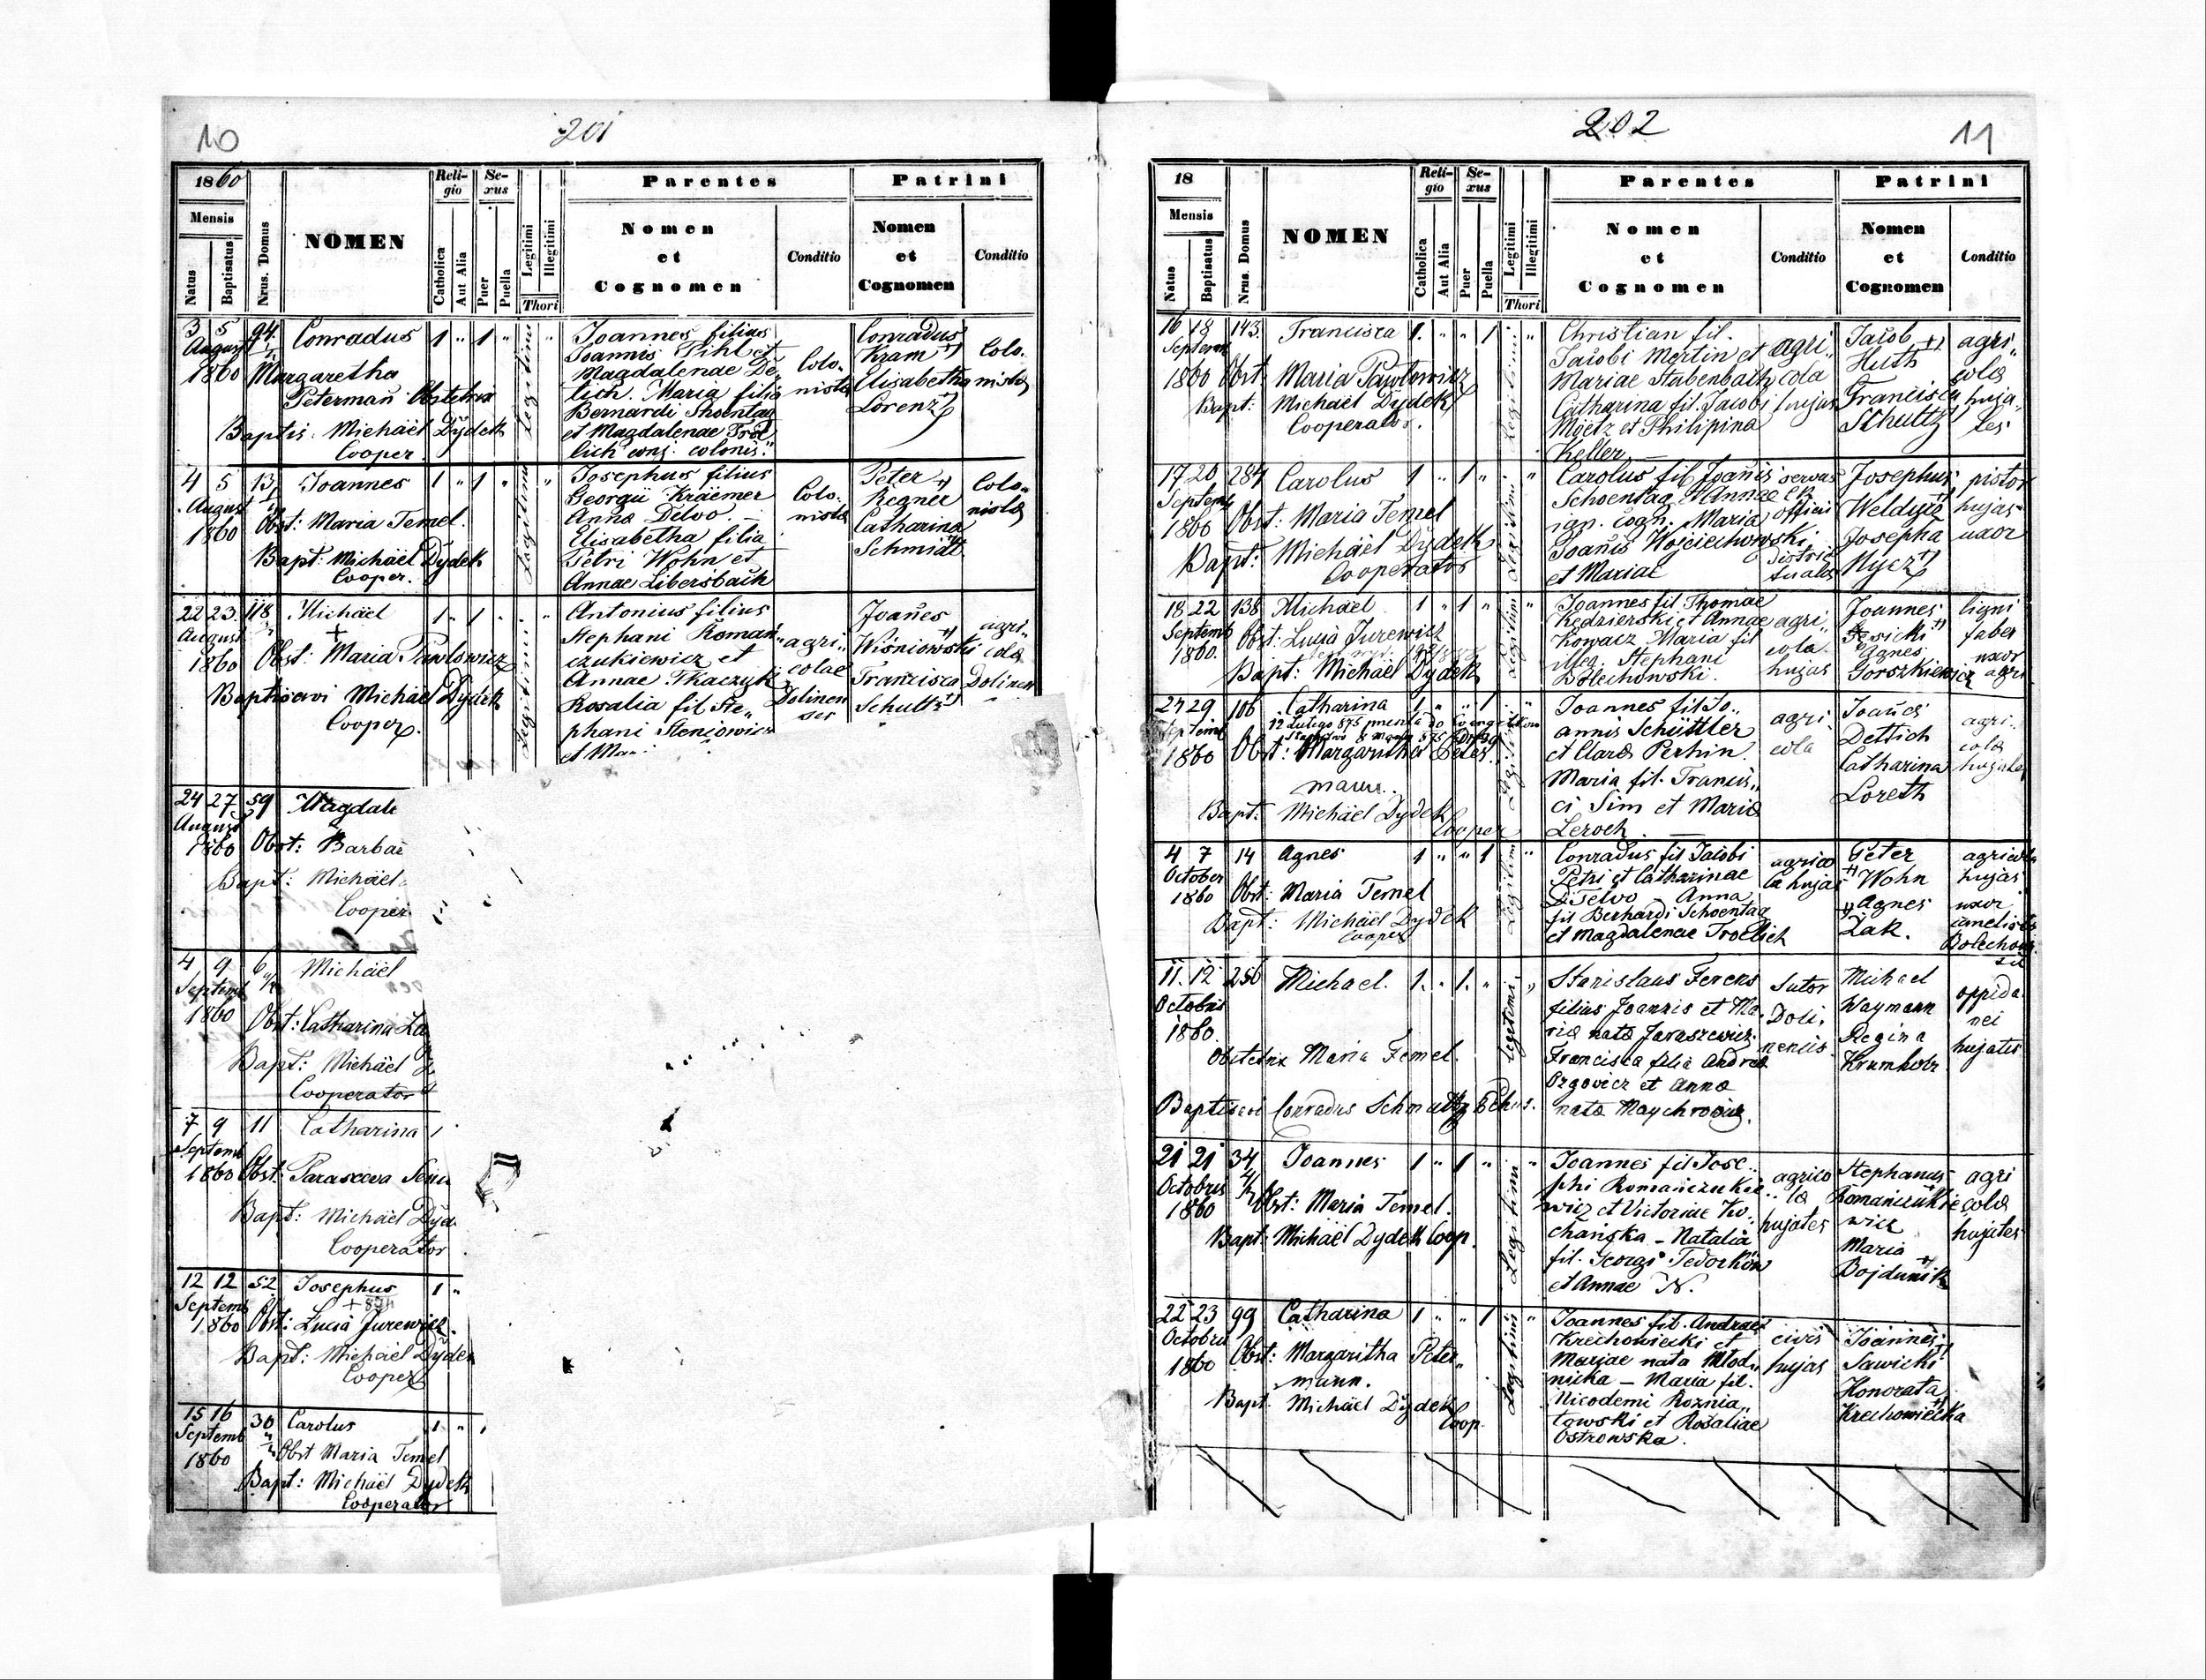 10
201
1860
Mensis
Natus
Baptisatus
Nrus. Domus
NOMEN
Religio
Catholica
Aut Alia
Sexus
Puer
Puella
Legitimi
Illegitimi
Thori
Parentes
Nomen
et
Cognomen
Conditio
Patrini
Nomen
et
Cognomen
Conditio
3 5 94 Conradus 1 " 1 " "
August
1860 Margaretha
Peterman Obstetrix
Baptis: Michäel Dÿdek
Cooper.
Legitimi
Joannes filius
Joannis Pihl et
Magdalenae De
lich. Maria filia
Bernardi Shoentag
et Magdalenae Froe
lich conj. colonis.
Colo-
nista
Conradus
Kram +)
Elisabetha
Lorenz +)
Colo-
nista
4 5 13 Joannes 1 " 1 " "
August
1860 Obst: Maria Temel.
Bapt: Michäel Dÿdek
Cooper.
Legitimi
Josephus filius
Georgii Kräemer
Anna Delvo. —
Elisabetha filia
Petri Wohn et
Annae Libersbach
Colo-
nista
Peter +)
Regner
Catharina
Schmidt
Colo-
nista
22 23 118 Michäel 1 " 1 " "
August +
1860 Obst: Maria Pawlowicz
Baptisavi Michäel Dÿdek
Cooper.
Legitimi
Antonius filius
Stephani Roman
czukiewicz et
Annae Tkaczyk
Rosalia fil Ste„
phani Steniowicz
et
agri„
colae
Dolinen
ses
Joanes
Wisniowski
Francisca
Schultz +)
agri„
cola
Dolinen
24 27 59 Magdale
August
1860 Obst: Barba
Bapt: Michäel
Cooper
4 9 6 Michäel
Septemb
1860 Obst: Catharina
Bapt: Michäel
Cooperator
7 9 11 Catharina 1
Septemb
1860 Obst: Parasceva
Bapt: Michäel Dÿd
Cooperator
12 12 52 Josephus 1 "
Septemb
1860 Obst: Lucia Jurewicz.
Bapt: Michäel Dÿdek
Cooper
15 16 30 Carolus 1 "
Septemb
1860 Obst Maria Temel
Bapt: Michäel Dydek
Cooperator
202
11
18
Mensis
Natus
Baptisatus
Nrus. Domus
NOMEN
Religio
Catholica
Aut Alia
Sexus
Puer
Puella
Legitimi
Illegitimi
Thori
Parentes
Nomen
et
Cognomen
Conditio
Patrini
Nomen
et
Cognomen
Conditio
16 18 143 Francisca 1. " " 1 "
Septemb
1860 Obst: Maria Pawlowicz
Bapt: Michäel Dÿdek
Cooperator.
Legitimi
Christian fil.
Jacobi Mertin et
Mariae Stubenbach
Catharina fil. Jacobi
Mÿetz et Philipina
Keller —
agri„
cola
hujas
Jacob +)
Huth
Francisca
Schultz
agri„
cola
huja„
tes
17 20 284 Carolus 1 " 1 " "
Septemb
1860 Obst: Maria Temel
Bapt: Michäel Dydek
Cooperator
Carolus fil Joanis
Schoentag et Annae
ign. cogn. Maria
Joanis Wojciechowski
et Mariae
servus
Josephus
Josepha
Mycz +)
pistor
hujas
uxor
18 22 138 Michael 1 " 1 " "
Septemb
1860. Obst: Lucia Jurewicz
Bapt: Michäel Dÿdek
Joannes fil Thomae
Kędzierski et Annae
Kowacz Maria fil
Stephani
Bolechowski.
agri„
cola
hujas
Joannes
Agnes
Gorszkiewicz
ligni
faber
uxor
agri
24 29 106 Catharina 1 " " 1 "
Septemb
1860 Obst: Margaritha Peter
mann.
Bapt: Michäel Dydek
Cooper
Joannes fil Jo„
annis Schüttler
et Clara Perhin.
Maria fil. Francis„
ci Sim et Maria
Leroch. —
agri
cola
Joanes
Dettich
Catharina
Loreth
agri„
cola
4 7 14 Agnes 1 " " 1 "
October
1860 Obst: Maria Temel
Bapt: Michäel Dydek
Cooper
Legitimi
Conradus fil Jacobi
Petri et Catharinae
Anna
fil Berhardi Schoentag
et Magdalenae Froelich
agrico
la hujas
Peter
Wohn
Agnes
Żak.
agricola
hujas
uxor
11. 12 256 Michael. 1. " 1. " "
Octobris
1860.
Obstetrix Maria Temel.
Baptisavi Conradus Schmaltz
Legitimi
Stanislaus Ferens
filius Joannis et Ma
ria nata Jaraszewicz.
Francisca filia Andrea
Orgovicz et Anna
nata Maychrowicz.
Sutor
Doli-
nensis.
Michael
Waymann
Regina
Krumholz
oppida
nei
hujates
21 21 34 Joannes 1 " 1 " "
Octobris
1860 Obst: Maria Temel.
Bapt: Michäel Dydek Coop.
Legitimi
Joannes fil Jose„
phi Romanczukie
wicz et Victoriae Ko„
chańska — Natalia
fil. Georgi Fedorków
et Annae N.
agrico
la
hujates
Stephanus
Romanczukie
wicz
Maria
Bojdunik
agri
cola
hujates
22 23 99 Catharina 1 " " 1 "
Octobris
1860 Obst: Margaritha Peter„
mann.
Bapt: Michäel Dydek
Coop.
Legitimi
Joannes fil. Andreae
Krechowiecki et
Mariae nata Młod„
nicka — Maria fil.
Nicodemi Roznia„
towski et Rozaliae
Ostrowska.
civis
hujas
Joannes
Sawicki
Honorata
Krechowiecka